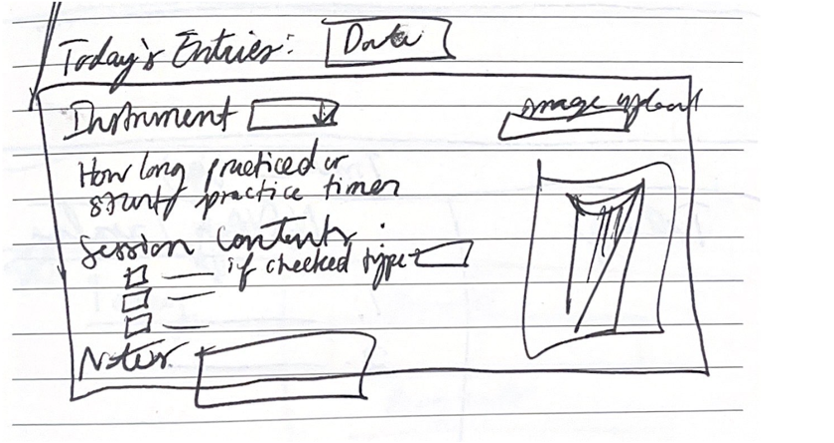 Today's Entries: Date
Instrument
image upload
How long practiced or
start practice timer
Session contents:
if checked type
Notes